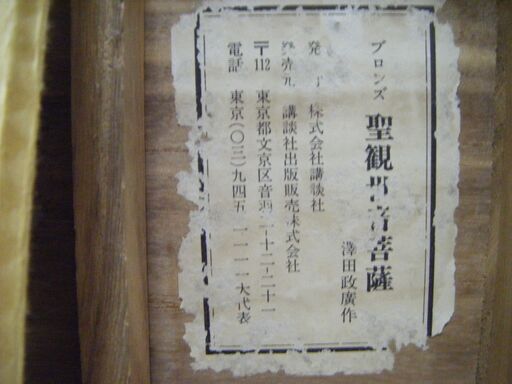 ブロンズ 聖観世音菩薩
澤田政廣作
発 行 株式会社講談社
発売元 講談社出版販売株式会社
〒112 東京都文京区音羽二-十二-二十一
電話 東京(〇三)九四五 一一一一大代表